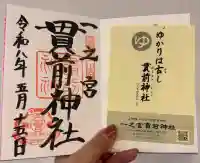 一之宮
貫前神社
令和八年五月十五日
ゆかりは古し
貫前神社
一之宮貫前神社